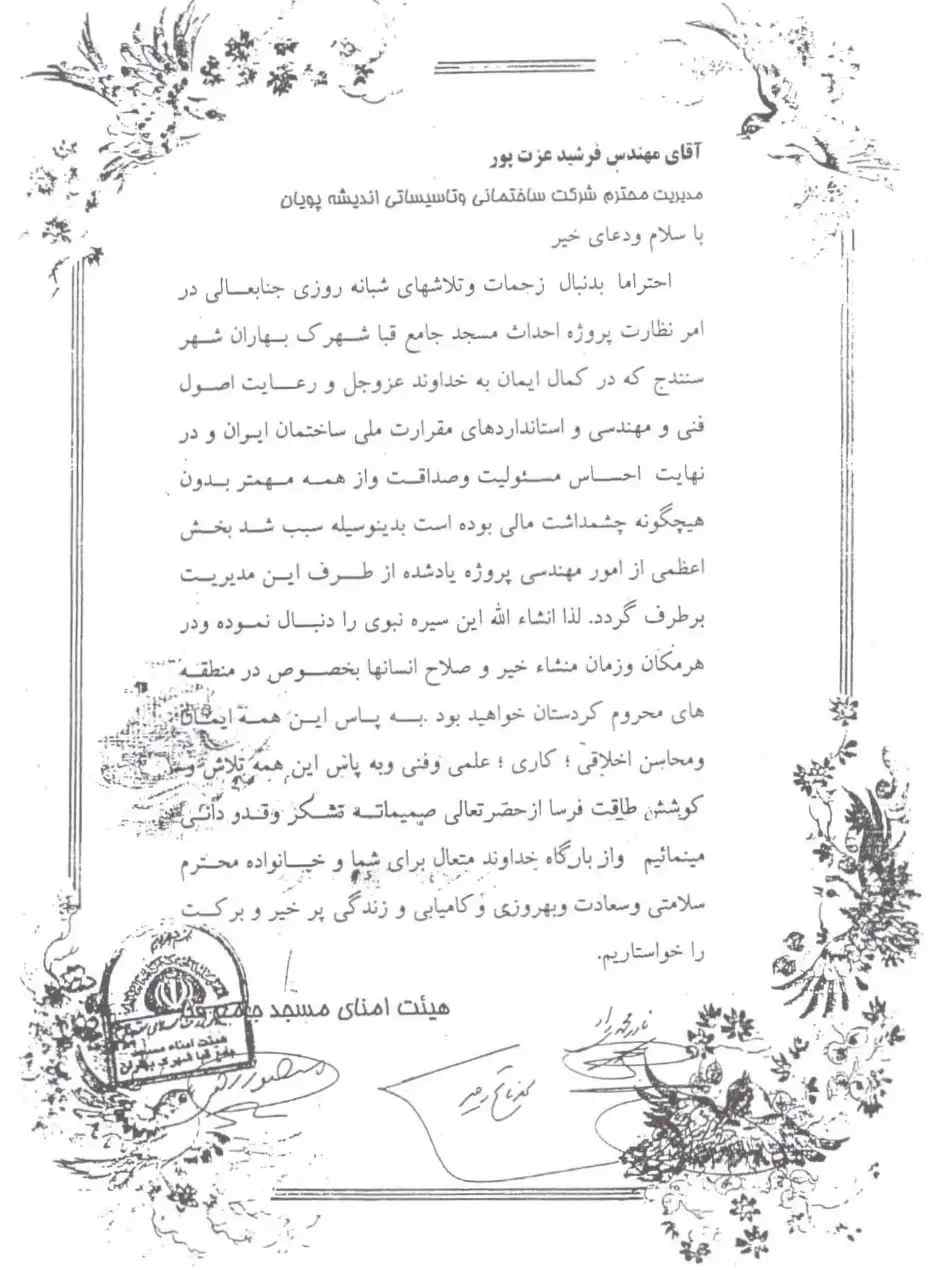 آقای مهندس فرشید عزت پور
مدیریت محترم شرکت ساختمانی وتاسیساتی اندیشه پویان
با سلام ودعای خیر
احتراما بدنبال زحمات وتلاشهای شبانه روزی جنابعالی در
امر نظارت پروژه احداث مسجد جامع قبا شهرک بهاران شهر
سنندج که در کمال ایمان به خداوند عزوجل و رعایت اصول
فنی و مهندسی و استانداردهای مقرارت ملی ساختمان ایران و در
نهایت احساس مسئولیت وصداقت واز همه مهمتر بدون
هیچگونه چشمداشت مالی بوده است بدینوسیله سبب شد بخش
اعظمی از امور مهندسی پروژه یادشده از طرف این مدیریت
برطرف گردد. لذا انشاء الله این سیره نبوی را دنبال نموده ودر
هرمکان وزمان منشاء خیر و صلاح انسانها بخصوص در منطقه
های محروم کردستان خواهید بود .به پاس این همه ایمان
ومحاسن اخلاقی ؛ کاری ؛ علمی وفنی وبه پاس این همه تلاش و
کوشش طاقت فرسا ازحضرتعالی صمیمانه تشکر وقدو دانی
مینمائیم واز بارگاه خداوند متعال برای شما و خانواده محترم
سلامتی وسعادت وبهروزی وکامیابی و زندگی پر خیر و برکت
را خواستاریم.
هیئت امنای مسجد جامع قبا
هیئت امناء مسجد
جامع قبا شهرک بهاران